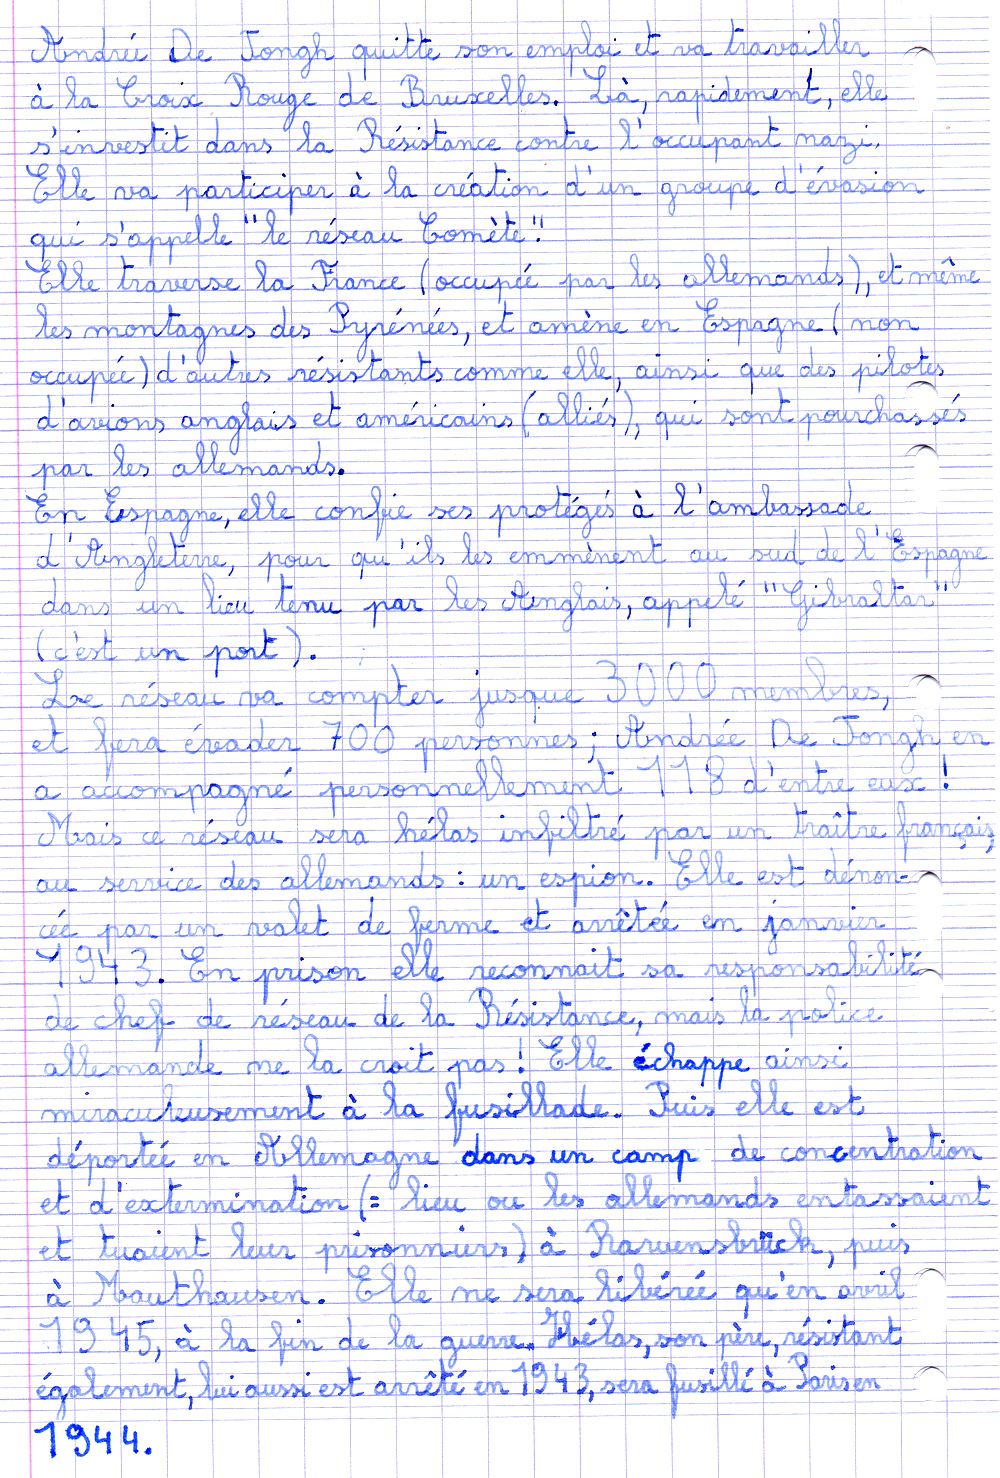 Andrée De Jongh quitte son emploi et va travailler
à la Croix Rouge de Bruxelles. Là, rapidement, elle
s'investit dans la Résistance contre l'occupant nazi.
Elle va participer à la création d'un groupe d'évasion
qui s'appelle "le réseau Comète".
Elle traverse la France (occupée par les allemands), et même
les montagnes des Pyrénées, et amène en Espagne (non
occupée) d'autres résistants comme elle, ainsi que des pilotes
d'avions anglais et américains (alliés), qui sont pourchassés
par les allemands.
En Espagne, elle confie ses protégés à l'ambassade
d'Angleterre, pour qu'ils les emmènent au sud de l'Espagne
dans un lieu tenu par les Anglais, appelé "Gibraltar"
(c'est un port).
Le réseau va compter jusque 3000 membres,
et fera évader 700 personnes; Andrée De Jongh en
a accompagné personnellement 118 d'entre eux !
Mais ce réseau sera hélas infiltré par un traître français,
au service des allemands : un espion. Elle est dénon-
cée par un valet de ferme et arrêtée en janvier
1943. En prison elle reconnait sa responsabilité
de chef de réseau de la Résistance, mais la police
allemande ne la croit pas ! Elle échappe ainsi
miraculeusement à la fusillade. Puis elle est
déportée en Allemagne dans un camp de concentration
et d'extermination (= lieu ou les allemands entassaient
et tuaient leur prisonniers) à Rarvensbrück, puis
à Mauthausen. Elle ne sera libérée qu'en avril
1945, à la fin de la guerre. Hélas, son père, résistant
également, lui aussi est arrêté en 1943, sera fusillé à Paris en
1944.